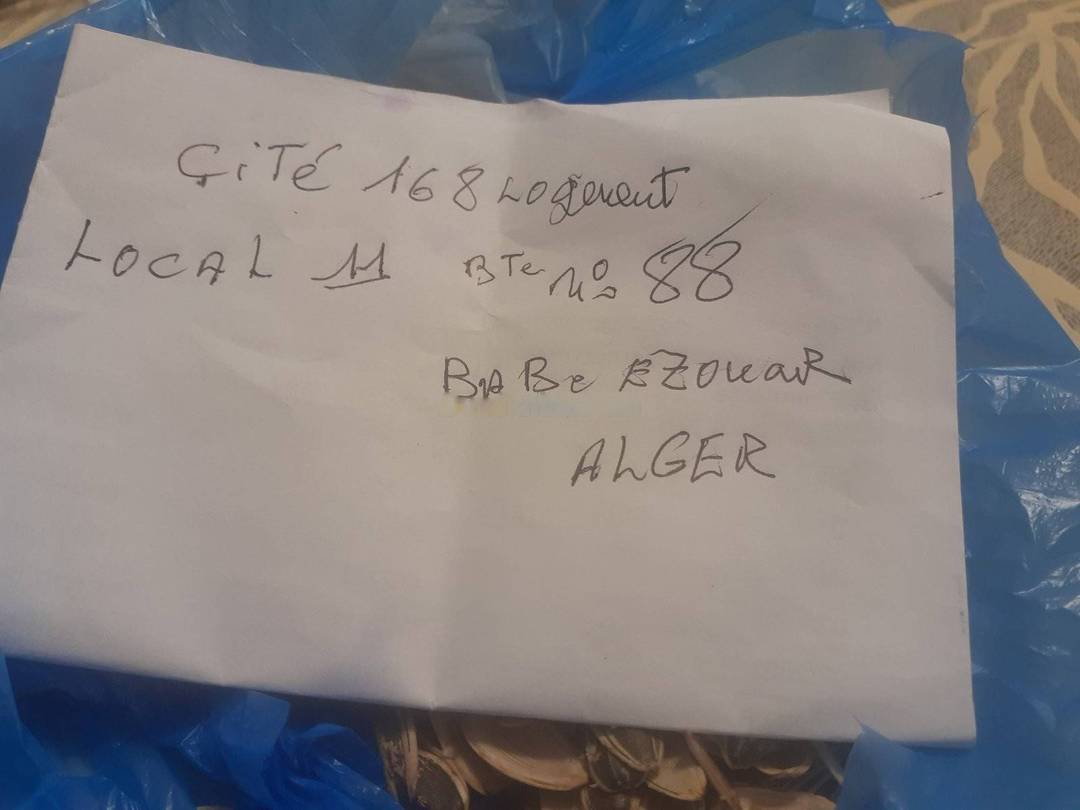 CiTé 168 Logement
LOCAL 11 BTe N° 88
BAB e EZOUAR
ALGER